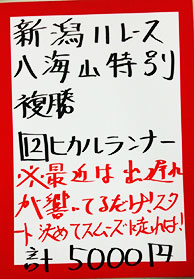 新潟11レース
八海山特別
複勝
12ヒカルランナー
※最近は出遅れ
が響いてるだけ!スタ
ート決めてスムーズに走れれば!
計5000円